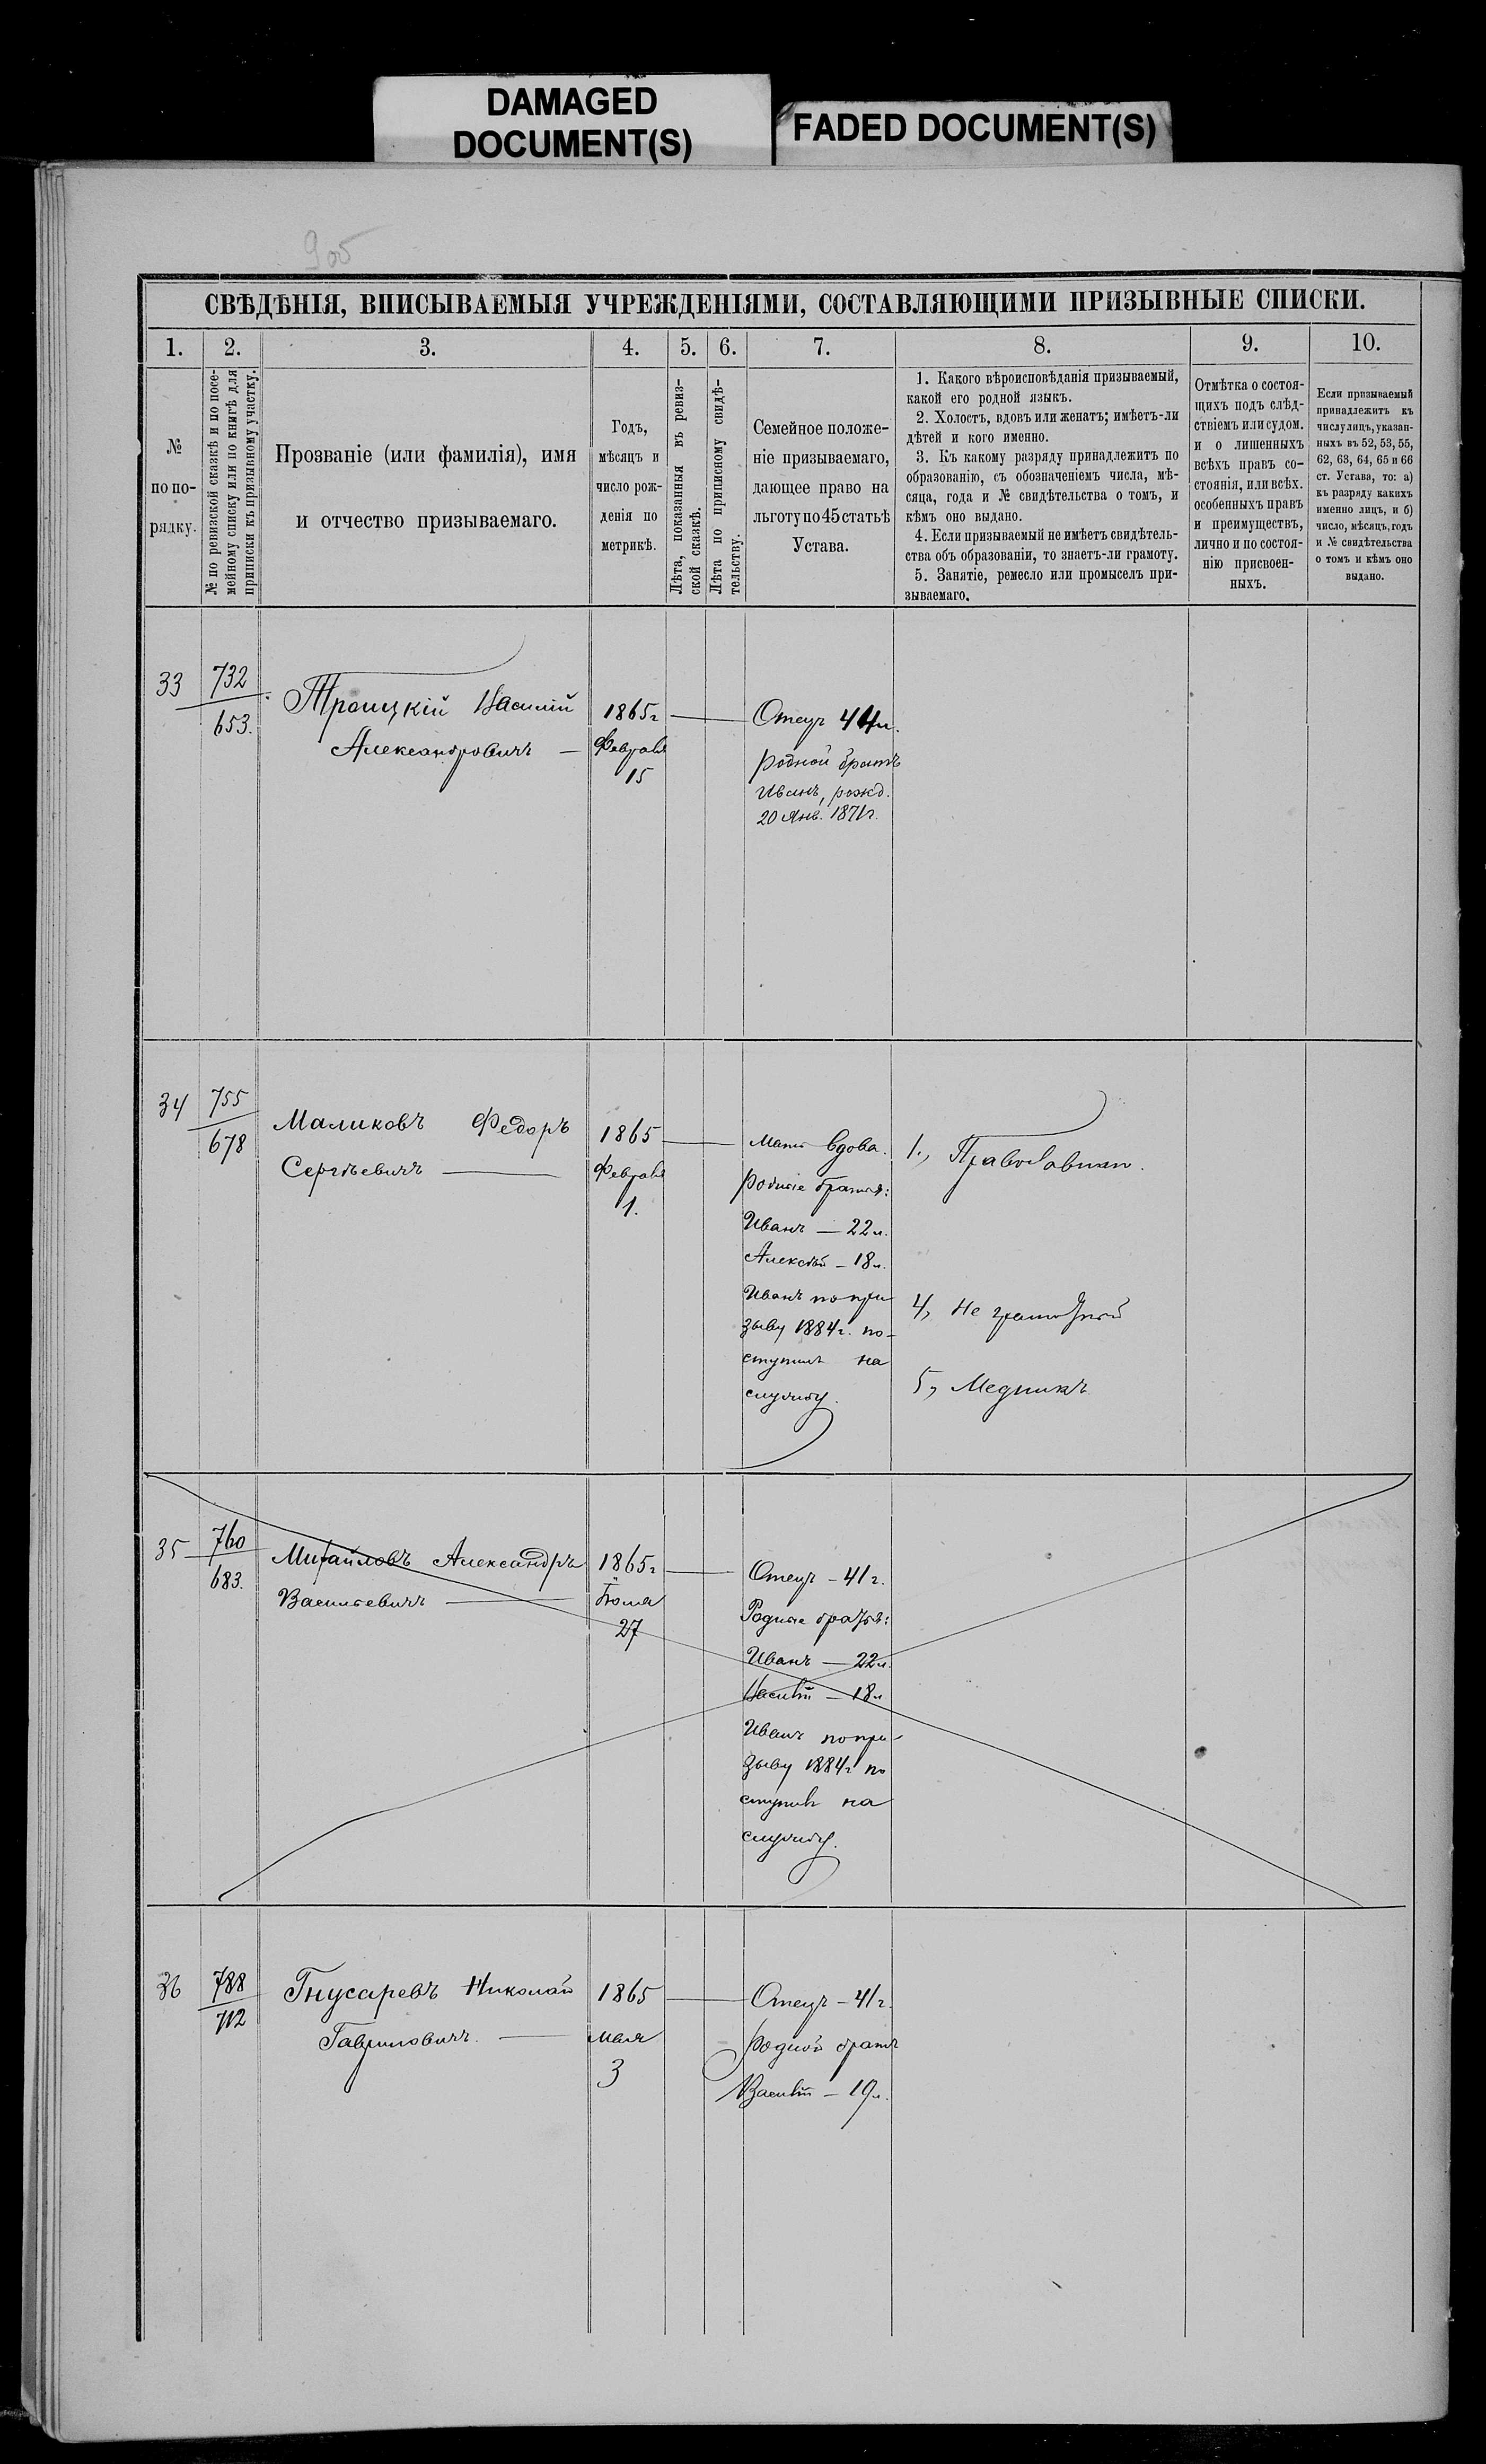 DAMAGED
DOCUMENT(S)
FADED DOCUMENT(S)
905
СВѢДѢНІЯ, ВПИСЫВАЕМЫЯ УЧРЕЖДЕНІЯМИ, СОСТАВЛЯЮЩИМИ ПРИЗЫВНЫЕ СПИСКИ.
1.
2.
3.
4.
5.
6.
7.
8.
9.
10.
№
по по-
рядку.
№ по ревизской сказкѣ и по посе-
мейному списку или по книгѣ для
приписки къ призывному участку.
Прозваніе (или фамилія), имя
и отчество призываемаго.
Годъ,
мѣсяцъ и
число рож-
денія по
метрикѣ.
Лѣта, показанныя въ ревиз-
ской сказкѣ.
Лѣта по приписному свидѣ-
тельству.
Семейное положе-
ніе призываемаго,
дающее право на
льготу по 45 статьѣ
Устава.
1. Какого вѣроисповѣданія призываемый,
какой его родной языкъ.
2. Холостъ, вдовъ или женатъ; имѣетъ-ли
дѣтей и кого именно.
3. Къ какому разряду принадлежитъ по
образованію, съ обозначеніемъ числа, мѣ-
сяца, года и № свидѣтельства о томъ, и
кѣмъ оно выдано.
4. Если призываемый не имѣетъ свидѣтель-
ства объ образованіи, то знаетъ-ли грамоту.
5. Занятіе, ремесло или промыселъ при-
зываемаго.
Отмѣтка о состоя-
щихъ подъ слѣд-
ствіемъ или судом.
и о лишенныхъ
всѣхъ правъ со-
стоянія, или всѣх.
особенныхъ правъ
и преимуществъ,
лично и по состоя-
нію присвоен-
ныхъ.
Если призываемый
принадлежитъ къ
числу лицъ, указан-
ныхъ въ 52, 53, 55,
62, 63, 64, 65 и 66
ст. Устава, то: а)
къ разряду какихъ
именно лицъ, и б)
число, мѣсяцъ, годъ
и № свидѣтельства
о томъ и кѣмъ оно
выдано.
33
732
653.
Троицкій Василій
Александровичъ —
1865г
Февраля
15
Отецъ 44л.
родной братъ
Иванъ, рожд.
20 Янв. 1871г.
34
755
678
Маликовъ Федоръ
Сергѣевичъ —
1865
Февраля
1.
Мать вдова.
Родные братья:
Иванъ — 22л.
Алексѣй — 18л.
Иванъ по при
зыву 1884г. по-
ступилъ на
службу.
1., Православнаго.
4, Не грамотный
5, Медникъ
35
760
683.
Михайловъ Александръ
Васильевичъ —
1865г
Іюля
27
Отецъ — 41г.
Родные братья:
Иванъ — 22л.
Василій — 18л
Иванъ по при-
зыву 1884г по
ступилъ на
службу.
36
788
712
Гнусаревъ Николай
Гавриловичъ. —
1865
мая
3
Отецъ — 41г.
Родной братъ
Василій — 19л.